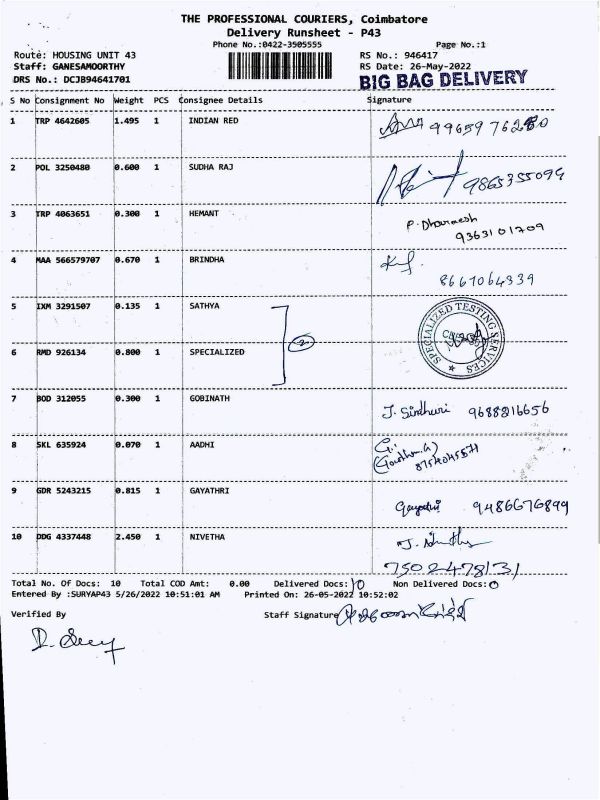 THE PROFESSIONAL COURIERS, Coimbatore
Delivery Runsheet - P43
Phone No.:0422-3505555 Page No.:1
Route: HOUSING UNIT 43 RS No.: 946417
Staff: GANESAMOORTHY RS Date: 26-May-2022
DRS No.: DCJB94641701 BIG BAG DELIVERY
S No Consignment No Weight PCS Consignee Details Signature
1 TRP 4642605 1.495 1 INDIAN RED
2 POL 3250480 0.600 1 SUDHA RAJ 9865355099
3 TRP 4063651 0.300 1 HEMANT P. Dharmesh
9363101709
4 MAA 566579707 0.670 1 BRINDHA
8667064339
5 IXM 3291507 0.135 1 SATHYA
SPECIALIZED TESTING SERVICES
2
6 RMD 926134 0.800 1 SPECIALIZED
7 BOD 312055 0.300 1 GOBINATH J. Sindhuri 9688216656
8 SKL 635924 0.070 1 AADHI
9 GDR 5243215 0.815 1 GAYATHRI Gayathri 9486676899
10 DDG 4337448 2.450 1 NIVETHA
7502478131
Total No. Of Docs: 10 Total COD Amt: 0.00 Delivered Docs: 10 Non Delivered Docs: 0
Entered By :SURYAP43 5/26/2022 10:51:01 AM Printed On: 26-05-2022 10:52:02
Verified By Staff Signature